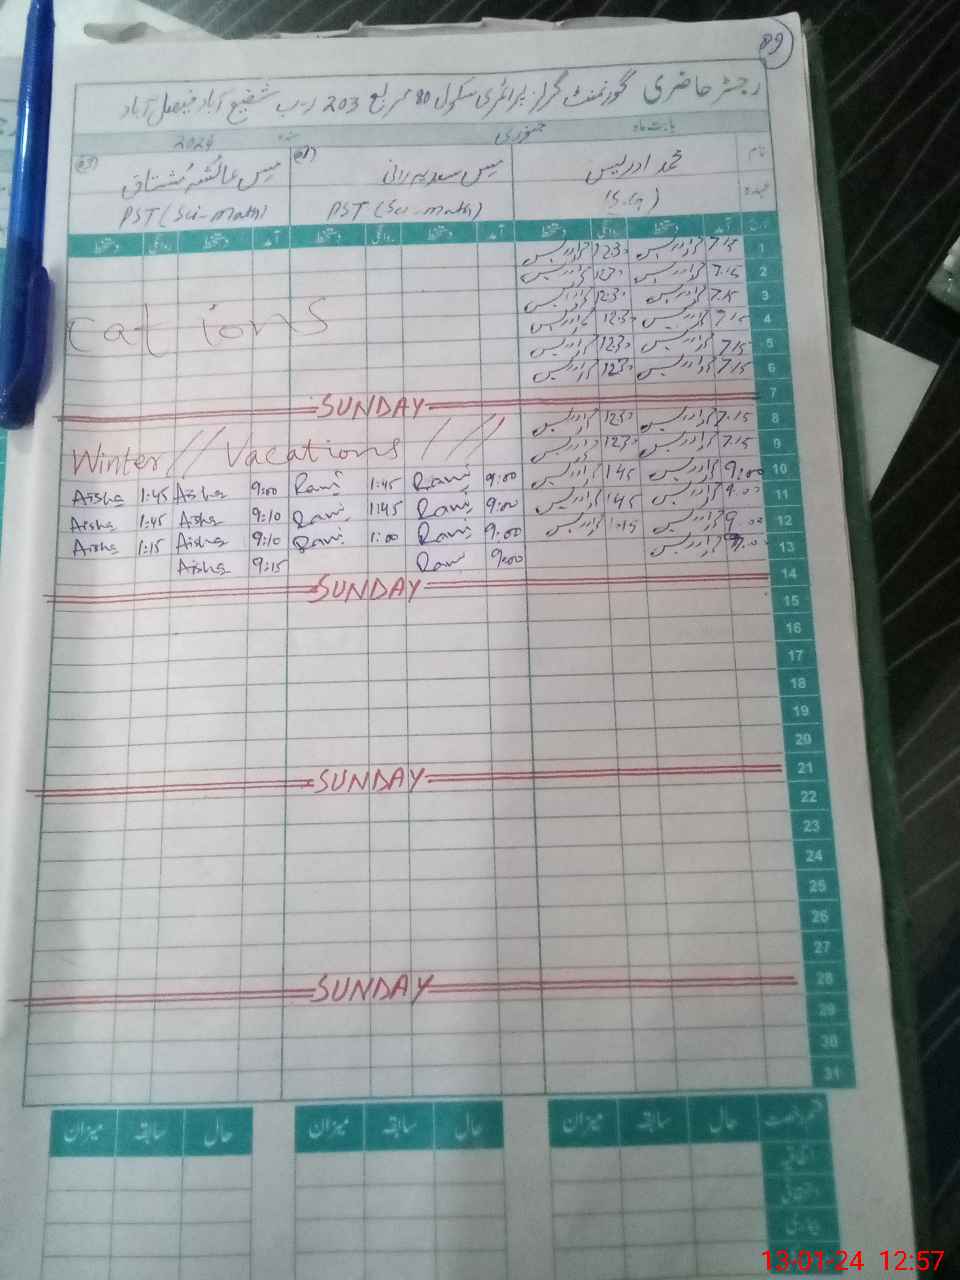 89
رجسٹر حاضری گورنمنٹ گرلز پرائمری سکول 80 مربع 203 ر-ب شفیع آباد فیصل آباد
بابت ماہ جنوری سنہ 2024
نام محمد ادریس مِس سعدیہ رانی مِس عائشہ مُشتاق
عہدہ (S.G) PST (Sci-math) PST (Sci-math)
آمد دستخط روانگی دستخط آمد دستخط روانگی دستخط آمد دستخط روانگی دستخط
1 7.15 ادریس 12.30 ادریس
2 7.15 ادریس 12.30 ادریس
3 7.15 ادریس 12.30 ادریس
cations
4 7.15 ادریس 12.30 ادریس
5 7.15 ادریس 12.30 ادریس
6 7.15 ادریس 12.30 ادریس
7 SUNDAY
8 7.15 ادریس 12.30 ادریس
9 7.15 ادریس 12.30 ادریس
Winter // Vacations ///
10 9:00 ادریس 1.45 ادریس 9:00 Rani 1:45 Rani 9:00 Aisha 1:45 Aisha
11 9.00 ادریس 1.45 ادریس 9:00 Rani 1:45 Rani 9:10 Aisha 1:45 Aisha
12 9.00 ادریس 1.15 ادریس 9:00 Rani 1:00 Rani 9:10 Aisha 1:15 Aisha
13 9.00 ادریس 9:00 Rani 9:15 Aisha
14 SUNDAY
15
16
17
18
19
20
21 SUNDAY
22
23
24
25
26
27
28 SUNDAY
29
30
31
قسم رخصت حال سابقہ میزان حال سابقہ میزان حال سابقہ میزان
اتفاقیہ
استحقاقی
بیماری
13-01-24 12:57